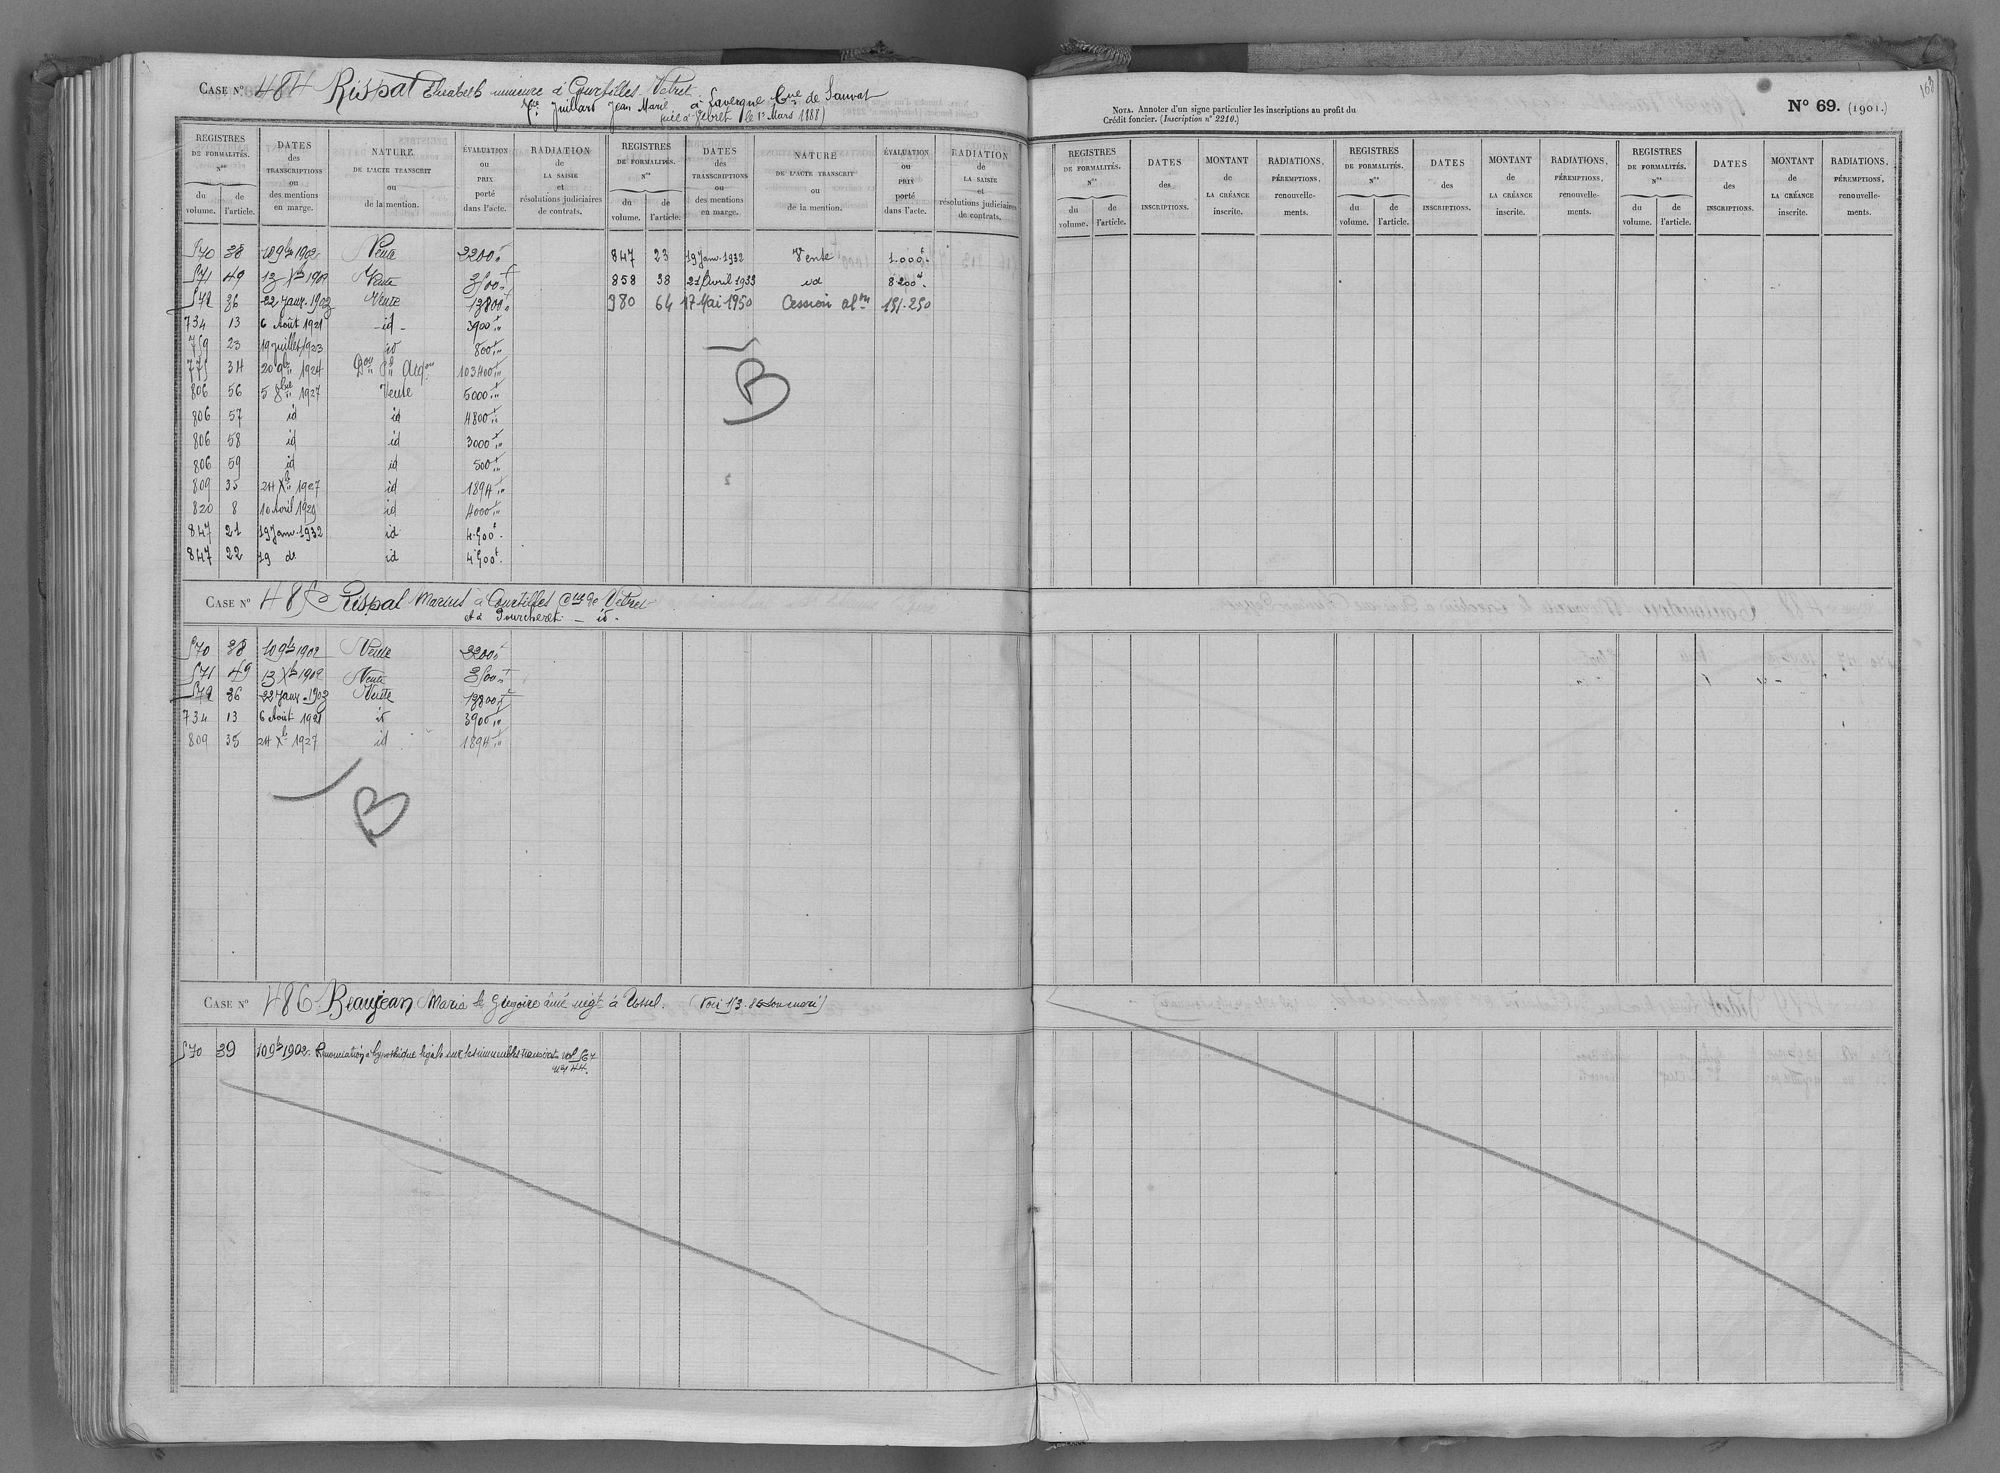 CASE N° 484 Rispal Elisabeth mineure à Courtilles Vebret
Fe Juillard Jean Marie à Lavergne Cne de Sauvat
née à Vebret le 13 Mars 1888)
REGISTRES DE FORMALITÉS. Nos du volume. de l'article.
DATES des TRANSCRIPTIONS ou des mentions en marge.
NATURE DE L'ACTE TRANSCRIT ou de la mention.
ÉVALUATION ou PRIX porté dans l'acte.
RADIATION de LA SAISIE et résolutions judiciaires de contrats.
REGISTRES DE FORMALITÉS. Nos du volume. de l'article.
DATES des TRANSCRIPTIONS ou des mentions en marge.
NATURE DE L'ACTE TRANSCRIT ou de la mention.
ÉVALUATION ou PRIX porté dans l'acte.
RADIATION de LA SAISIE et résolutions judiciaires de contrats.
570 38 10 9bre 1902 Vente 2200
571 49 13 Xbre 1902 Vente
572 36 22 Janv. 1903 Vente 13800
734 13 6 Août 1921 - id - 3900
759 23 19 juillet 1923 id 800
775 34 20 9bre 1924 Don pge Acqon 103400
806 56 5 8bre 1927 Vente 5000
806 57 id id 4800
806 58 id id 3000
806 59 id id 500
809 35 24 Xb 1927 id 1894
820 8 10 Avril 1929 id 4000
847 21 19 Janv. 1932 id 4.500
847 22 19 do id 4.500
847 23 19 Janv. 1932 Vente 1.000
858 38 21 Avril 1933 id 8200
980 64 17 Mai 1950 Cession 151.250
B
CASE N° 485 Rispal Marius à Courtilles Cne de Vebret
et à Pourcheret - id -
570 38 10 9bre 1902 Vente 2200
571 49 13 Xbre 1902 Vente
572 36 22 Janv. 1903 Vente 13800
734 13 6 Août 1921 id 3900
809 35 24 Xb 1927 id 1894
B
CASE N° 486 Beaujean Maria fe Grégoire aîné négt à Ussel (Voir 113. 85 son mari)
570 39 10 9bre 1902. Renonciation à hypothèque légale sur les immeubles transcrits vol 567
no 44.
168
NOTA. Annoter d'un signe particulier les inscriptions au profit du
Crédit foncier. (Inscription n° 2210.)
N° 69. (1901.)
REGISTRES DE FORMALITÉS. Nos du volume. de l'article.
DATES des INSCRIPTIONS.
MONTANT de LA CRÉANCE inscrite.
RADIATIONS, PÉREMPTIONS, renouvellements.
REGISTRES DE FORMALITÉS. Nos du volume. de l'article.
DATES des INSCRIPTIONS.
MONTANT de LA CRÉANCE inscrite.
RADIATIONS, PÉREMPTIONS, renouvellements.
REGISTRES DE FORMALITÉS. Nos du volume. de l'article.
DATES des INSCRIPTIONS.
MONTANT de LA CRÉANCE inscrite.
RADIATIONS, PÉREMPTIONS, renouvellements.